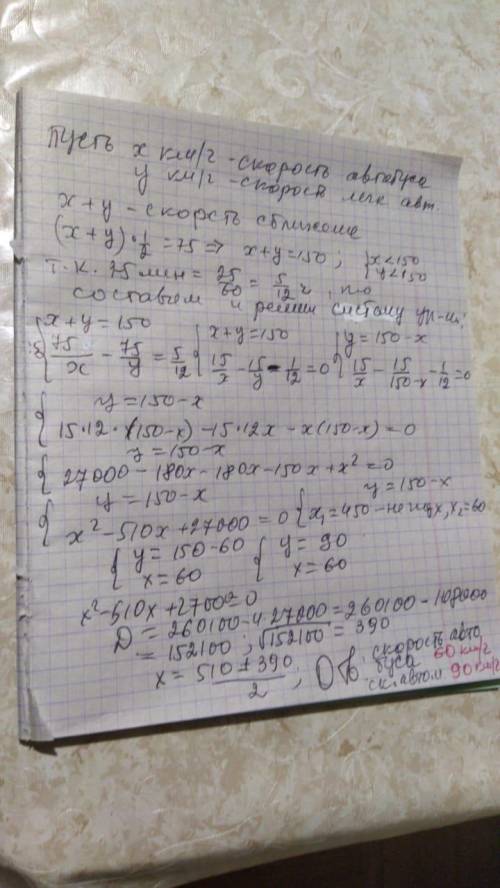 Пусть x км/г - скорость автобуса
y км/г - скорость легк авт.
x+y - скорсть сближ
(x+y)·1/2 = 75 ⇒ x+y=150 ; {x<150 y<150
т.к. 25 мин = 25/60 = 5/12 ч, то
составим и решим систему ур-й:
{x+y=150 75/x - 75/y = 5/12 {x+y=150 15/x - 15/y - 1/12 = 0 {y=150-x 15/x - 15/150-x - 1/12 = 0
{y=150-x
15·12·(150-x) - 15·12x - x(150-x) = 0
{y=150-x
27000 - 180x - 180x - 150x + x² = 0
{y=150-x {y=150-x
x² - 510x + 27000 = 0 x₁=450 - не подх, x₂=60
{y=150-60 {y=90
x=60 x=60
x² - 510x + 27000 = 0
D = 260100 - 4·27000 = 260100 - 108000
= 152100 ; √152100 = 390
x = 510 ± 390 / 2 ; Отв. скорость авто
буса 60 км/г
ск. автом 90 км/г